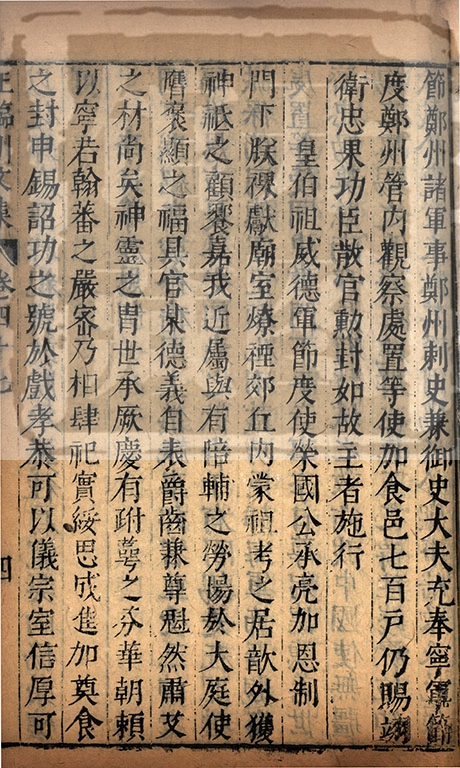 節鄭州諸軍事鄭州刺史兼御史大夫充奉寧軍節
度鄭州管内觀察處置等使加食邑七百户仍賜翊
衛忠果功臣散官勳封如故主者施行
皇伯祖威德軍節度使榮國公承亮加恩制
門下朕祼獻廟室燎禋郊丘内蒙祖考之居歆外獲
神祇之顧饗嘉我近屬與有陪輔之勞揚於大庭使
膺褒顯之福具官某德義自表爵齒兼尊彪然肅艾
之材尚矣神靈之冑世承厥慶有跗蕚之芬華朝賴
以寧若翰蕃之嚴密乃相肆祀實綏思成進加奠食
之封申錫詔功之號於戲孝恭可以儀宗室信厚可
王臨川文集 卷四十七 四